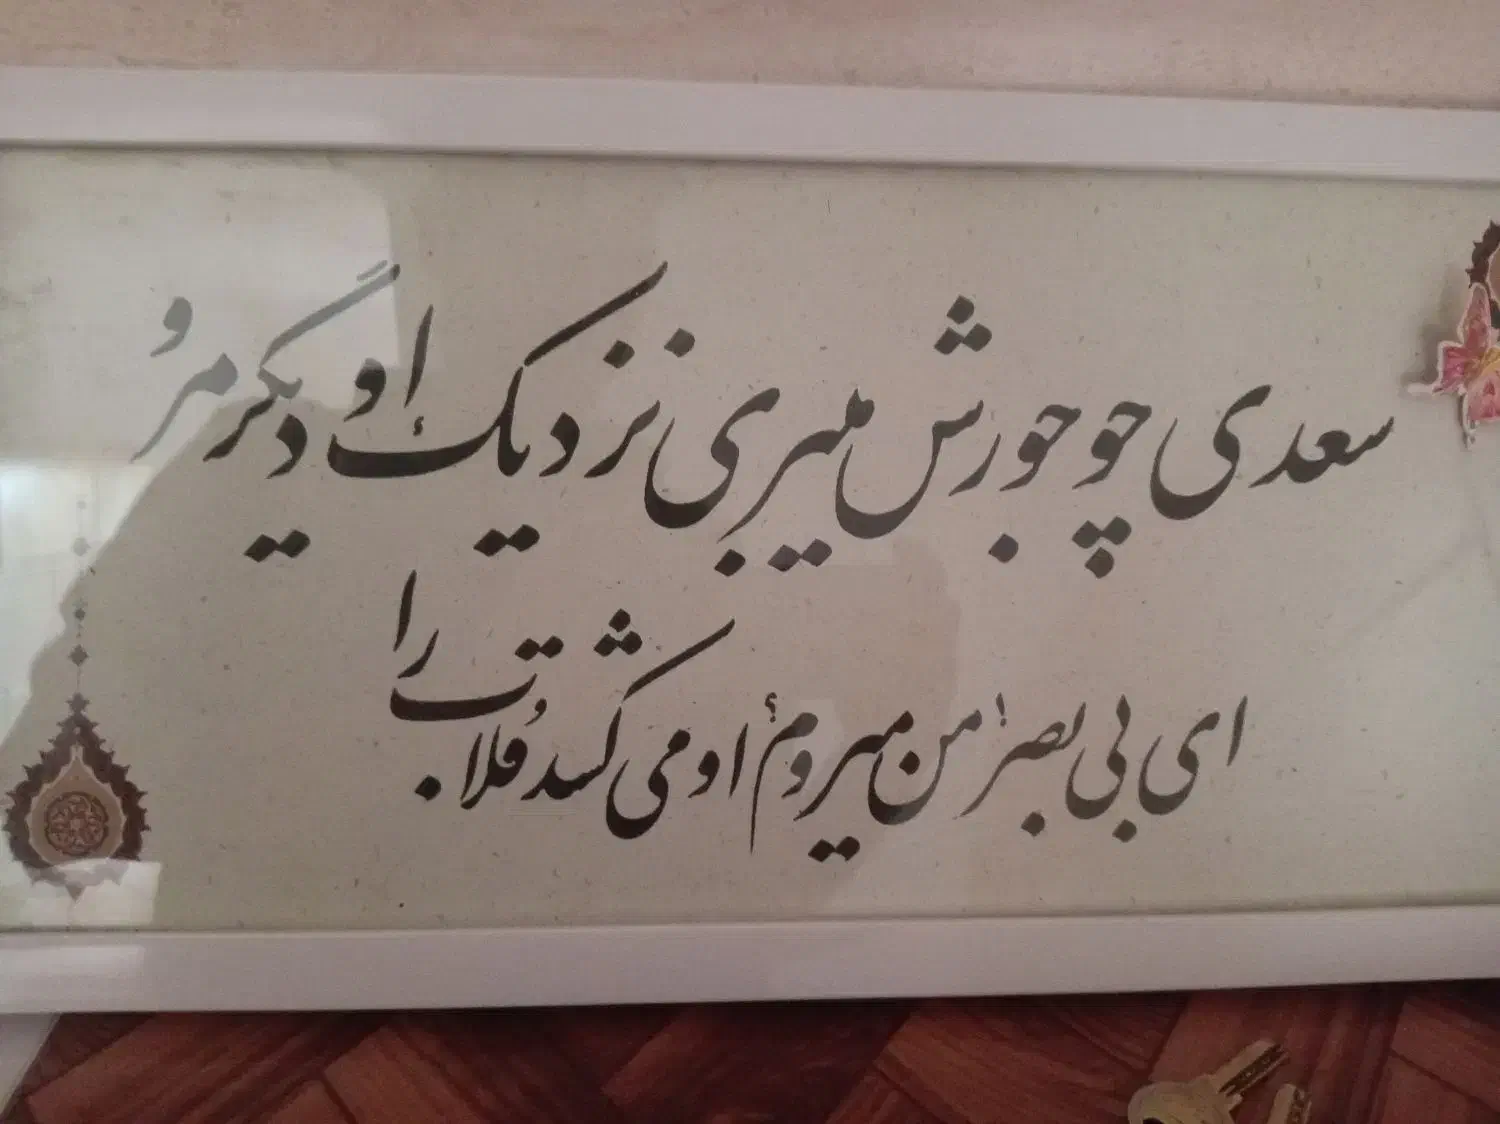 سعدی چو جورش میبری نزدیک او دیگر مرو
ای بی بصر من میروم او می کشد قلاب را